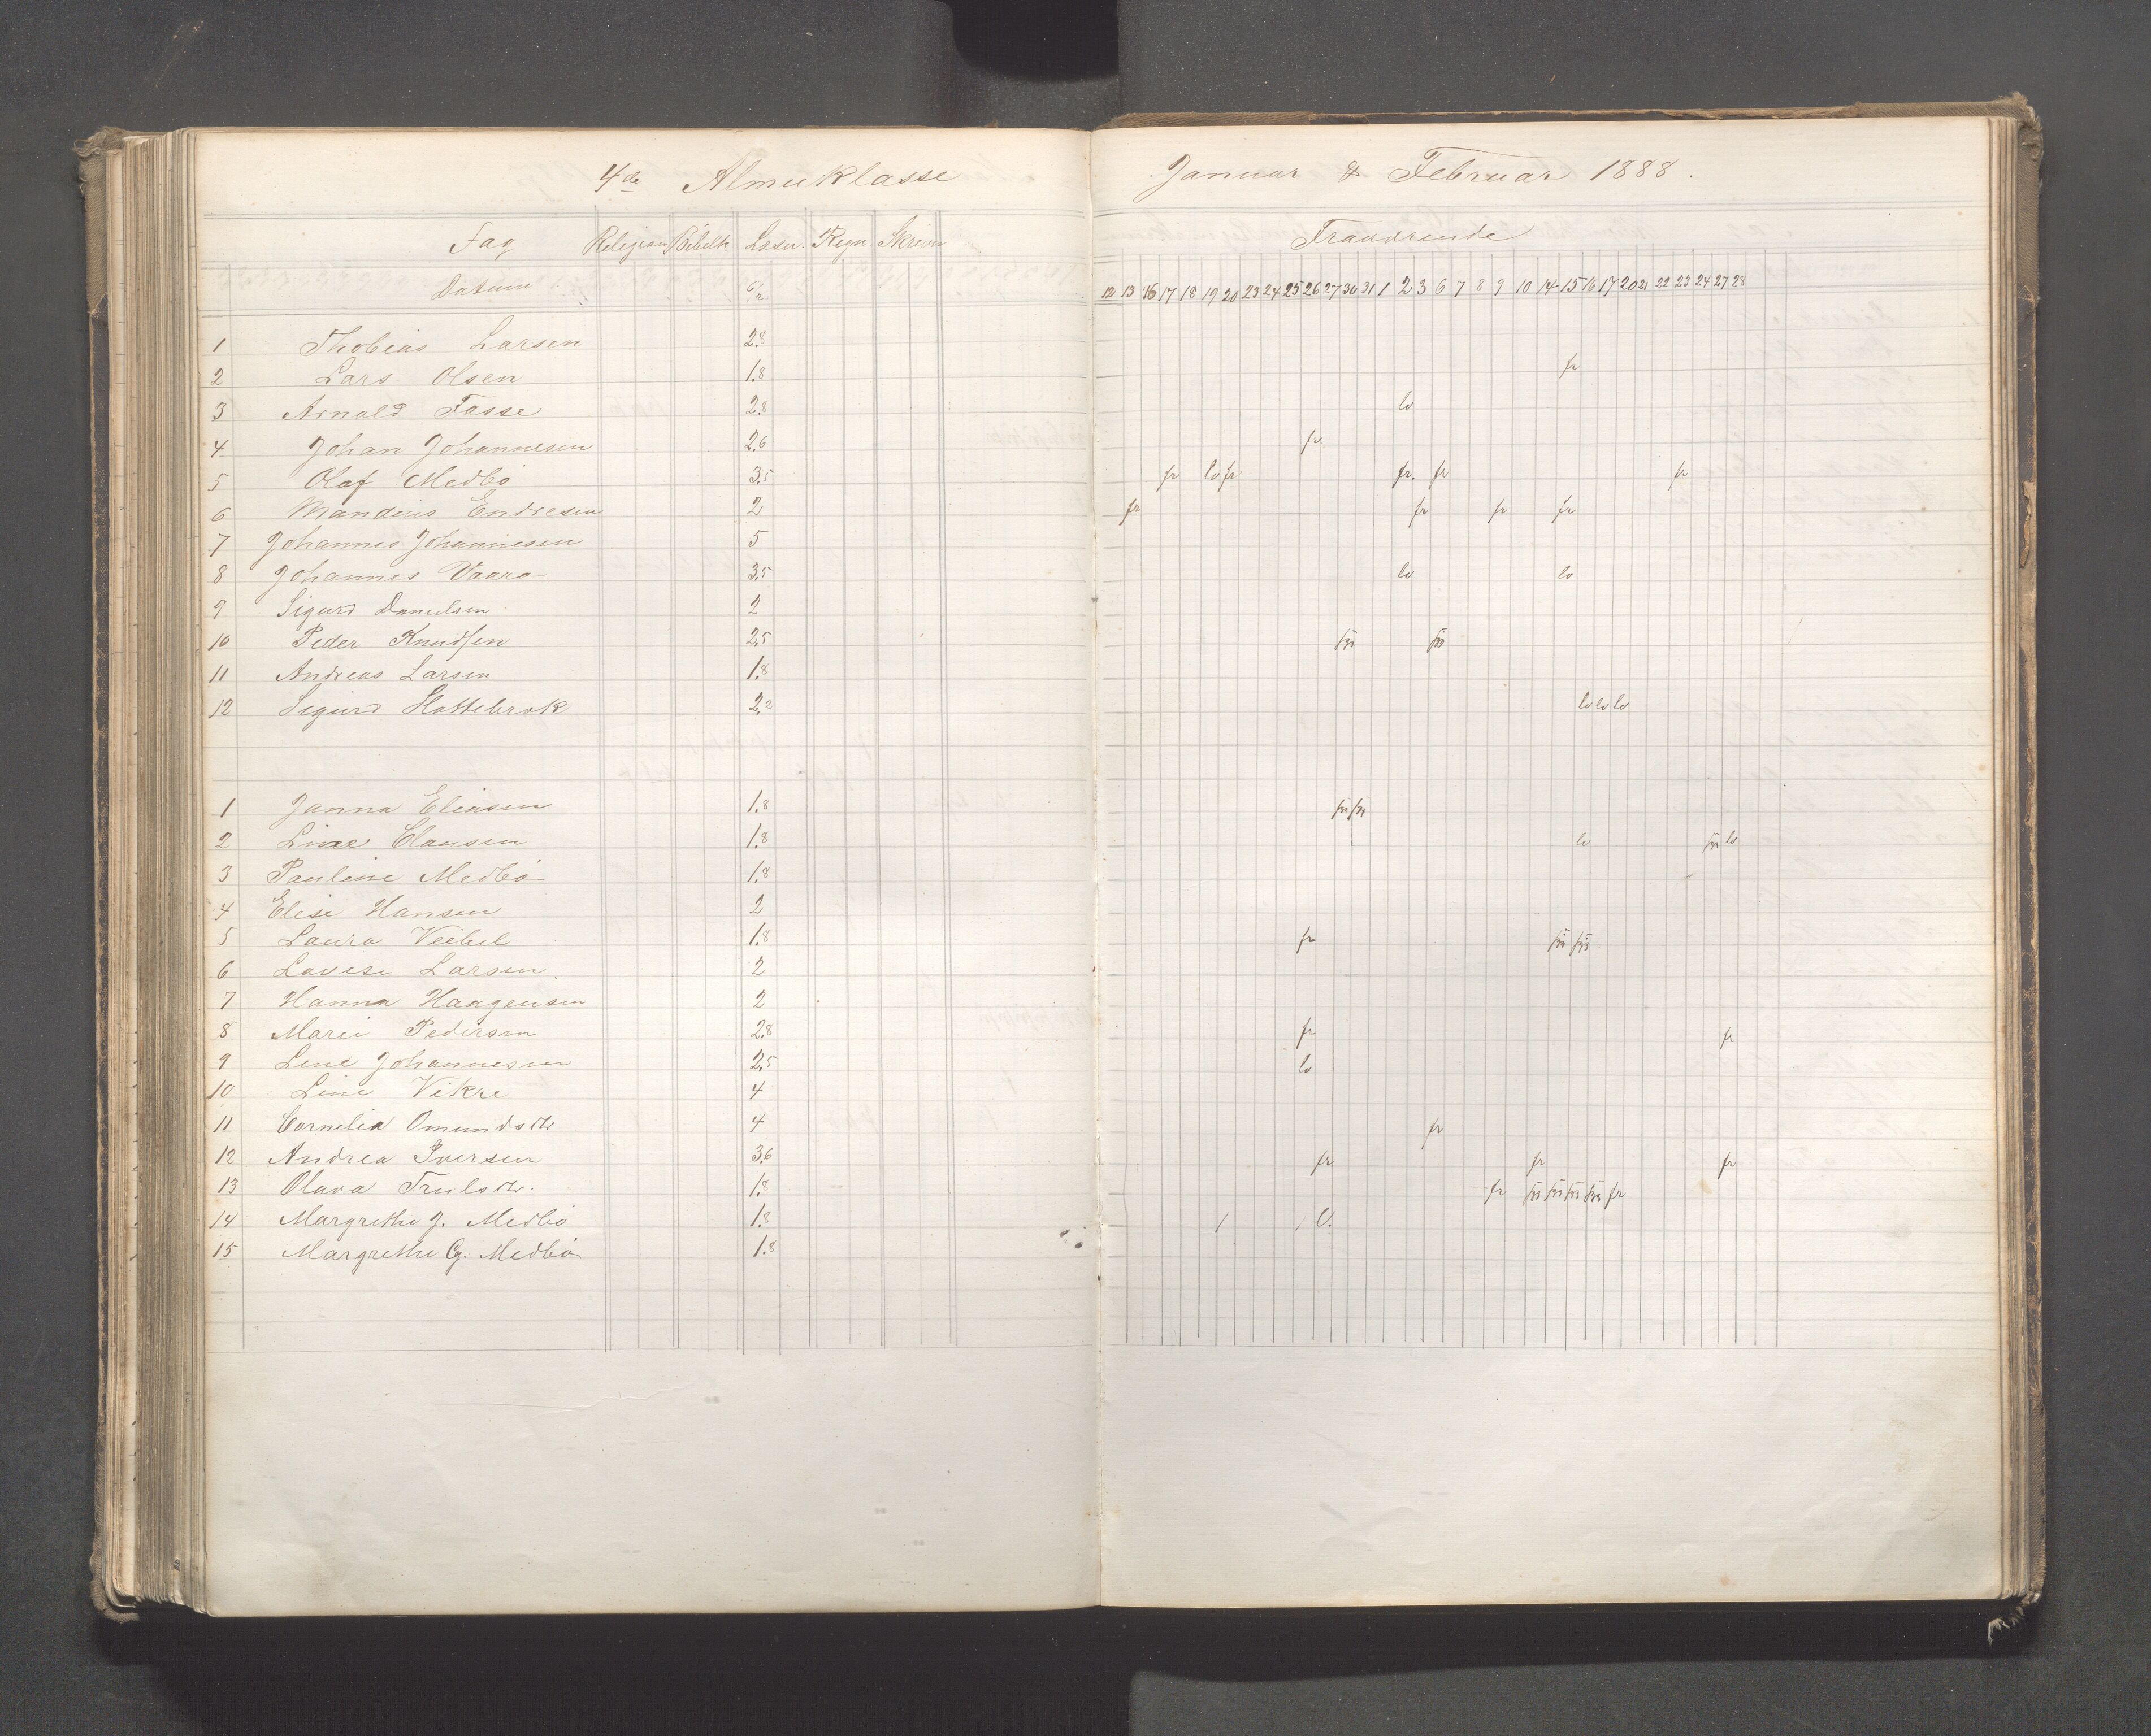 4de Almueklasse
Fag Religion Bibelh Læsn. Regn Skrivn
Datum 6/2
1 Thobias Larsen 2.8
2 Lars Olsen 1.8
3 Arnold Fasse 2.8
4 Johan Johannesen 2.6
5 Olaf Medbø 3.5
6 Mandius Endresen 2
7 Johannes Johannesen 5
8 Johannes Vaara 3.5
9 Sigurd Danielsen 2
10 Peder Knudsen 2.5
11 Andreas Larsen 1.8
12 Sigurd Slottebrok 2.2
1 Janna Eliasen 1.8
2 Line Clausen 1.8
3 Pauline Medbø 1.8
4 Elise Hansen 2
5 Laura Veibel 1.8
6 Lovise Larsen. 2
7 Hanna Haagensen 2
8 Marie Pedersen 2.8
9 Lene Johannesen 2.5
10 Line Vikre 4
11 Cornelia Omundsdtr 4
12 Andrea Iversen 3.6
13 Olava Trulsdtr. 1.8
14 Margrethe J. Medbø 1.8
15 Margrethe G. Medbø 1.8
Januar & Februar 1888.
Fraværende
12 13 16 17 18 19 20 23 24 25 26 27 30 31 1 2 3 6 7 8 9 10 14 15 16 17 20 21 22 23 24 27 28
fr
lo
fr
fr lo fr fr. fr fr
fr fr fr fr
lo lo
lo lo lo
lo lo
fr
fr fr
lo
fr
fr fr fr
fr fr